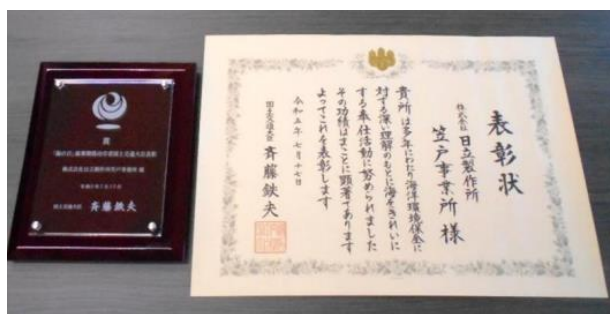 表彰状
株式会社 日立製作所
笠戸事業所 様
貴所は多年にわたり海洋環境保全に
対する深い理解のもとに海をきれいに
する奉仕活動に努められました
その功績はまことに顕著であります
よってこれを表彰します
令和五年七月十七日
国土交通大臣 斉藤鉄夫
国土交通大臣 斉藤鉄夫